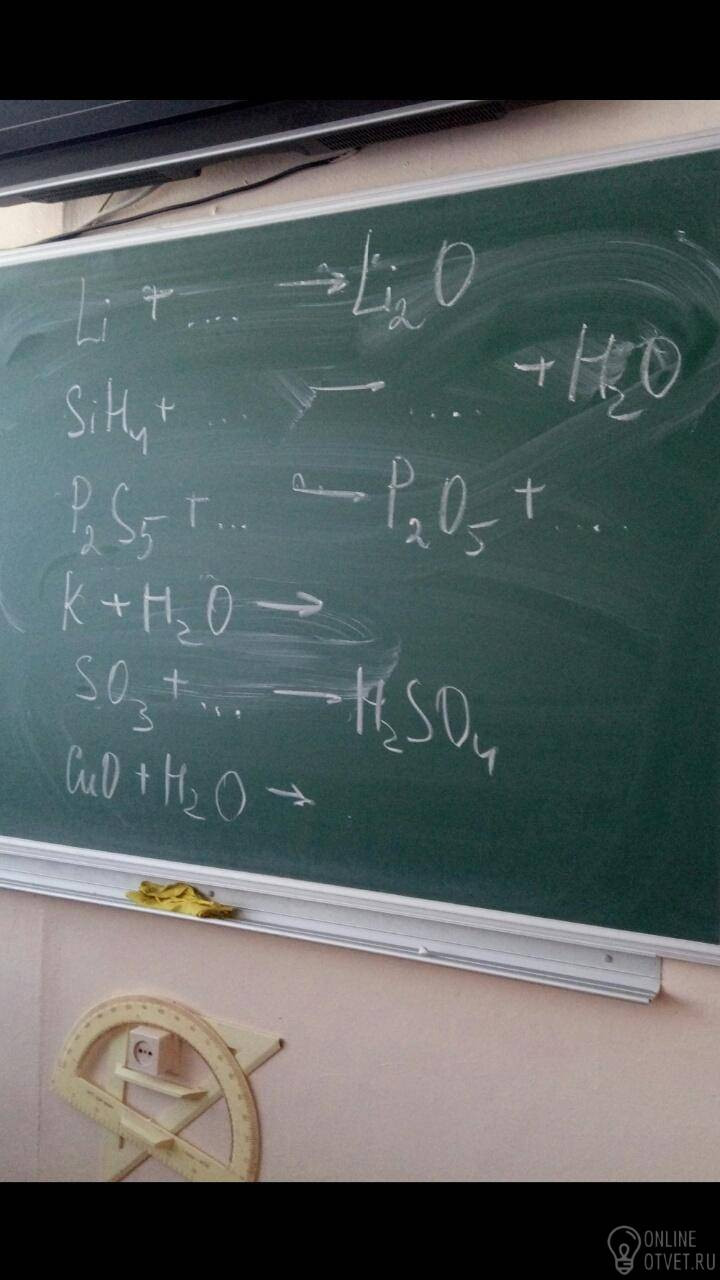 Li + .... → Li₂O
SiH₄ + ... → .... + H₂O
P₂S₅ + ... → P₂O₅ + ....
K + H₂O →
SO₃ + ... → H₂SO₄
CuO + H₂O →
ONLINE
OTVET.RU